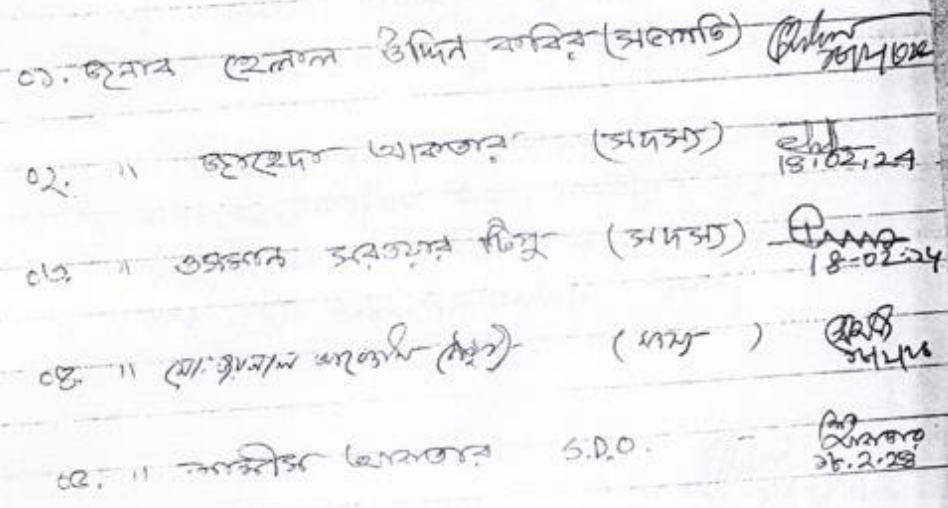 ০১. জনাব হেলাল উদ্দিন কবির (সভাপতি)
০২. " জাহেদা আকতার (সদস্য) 18.02.24
০৩. " ওসমান সরওয়ার টিপু (সদস্য) 18-02-24
০৪. " মোঃ জয়নাল আবেদীন (সদস্য)
০৫. " আকতার S.D.O. - আকতার ১৮.২.২৪